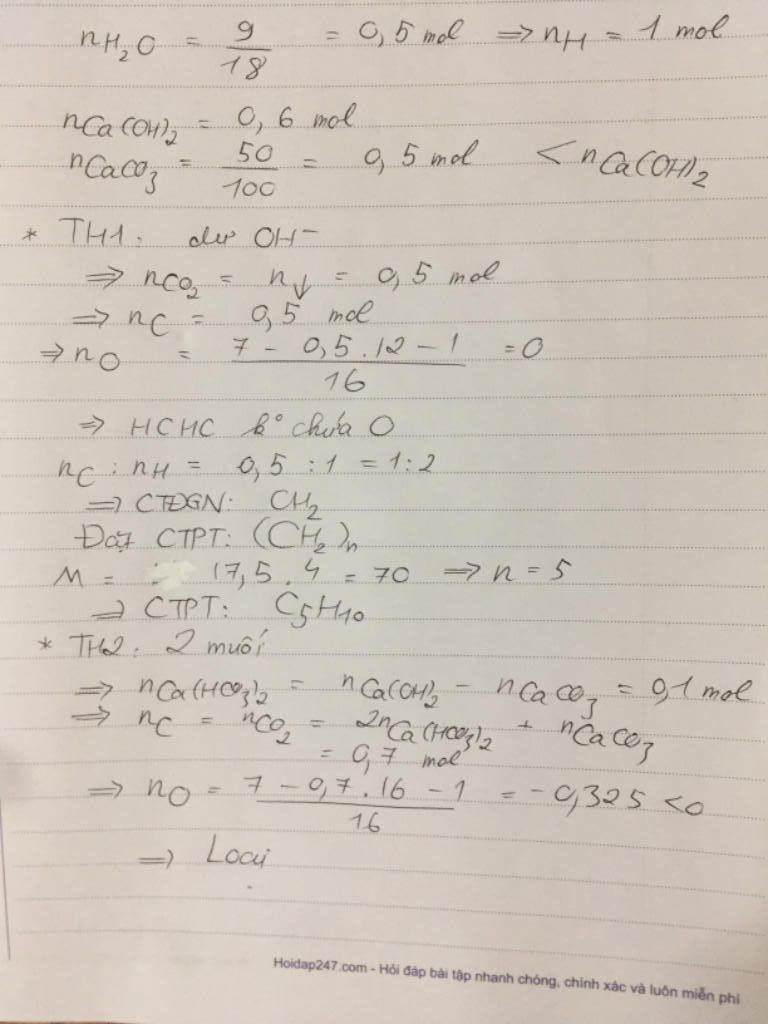 nH₂O = 9/18 = 0,5 mol ⇒ nH = 1 mol
nCa(OH)₂ = 0,6 mol
nCaCO₃ = 50/100 = 0,5 mol < nCa(OH)₂
* TH1: dư OH⁻
⇒ nCO₂ = n↓ = 0,5 mol
⇒ nC = 0,5 mol
⇒ nO = (7 - 0,5.12 - 1)/16 = 0
⇒ HCHC k° chứa O
nC : nH = 0,5 : 1 = 1:2
⇒ CTĐGN: CH₂
Đặt CTPT: (CH₂)n
M = 17,5.4 = 70 ⇒ n = 5
⇒ CTPT: C₅H₁₀
* TH2: 2 muối
⇒ nCa(HCO₃)₂ = nCa(OH)₂ - nCaCO₃ = 0,1 mol
⇒ nC = nCO₂ = 2nCa(HCO₃)₂ + nCaCO₃
= 0,7 mol
⇒ nO = (7 - 0,7.16 - 1)/16 = -0,325 <0
⇒ Loại
Hoidap247.com - Hỏi đáp bài tập nhanh chóng, chính xác và luôn miễn phí